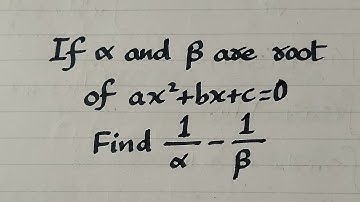 If α and β are root
of ax²+bx+c=0
Find 1/α - 1/β